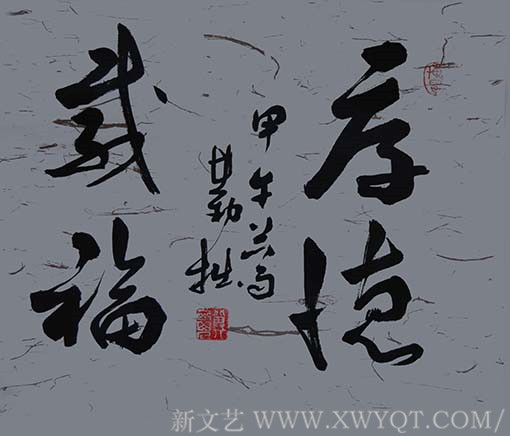 厚德
载福
甲午
勤拙
新文艺 WWW.XWYQT.COM/